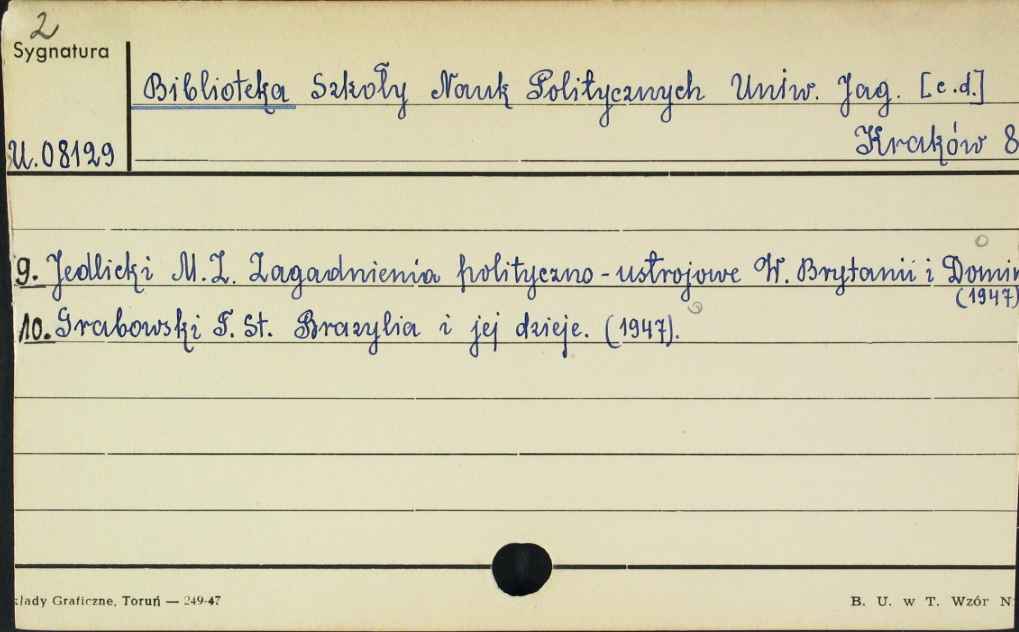 2
Sygnatura
Biblioteka Szkoły Nauk Politycznych Uniw. Jag. [c.d.]
U.08129
Kraków 8
9. Jedlicki M.Z. Zagadnienia polityczno-ustrojowe W. Brytanii i Domin
(1947)
10. Grabowski T. St. Brazylia i jej dzieje. (1947).
kłady Graficzne, Toruń — 249-47
B. U. w T. Wzór N